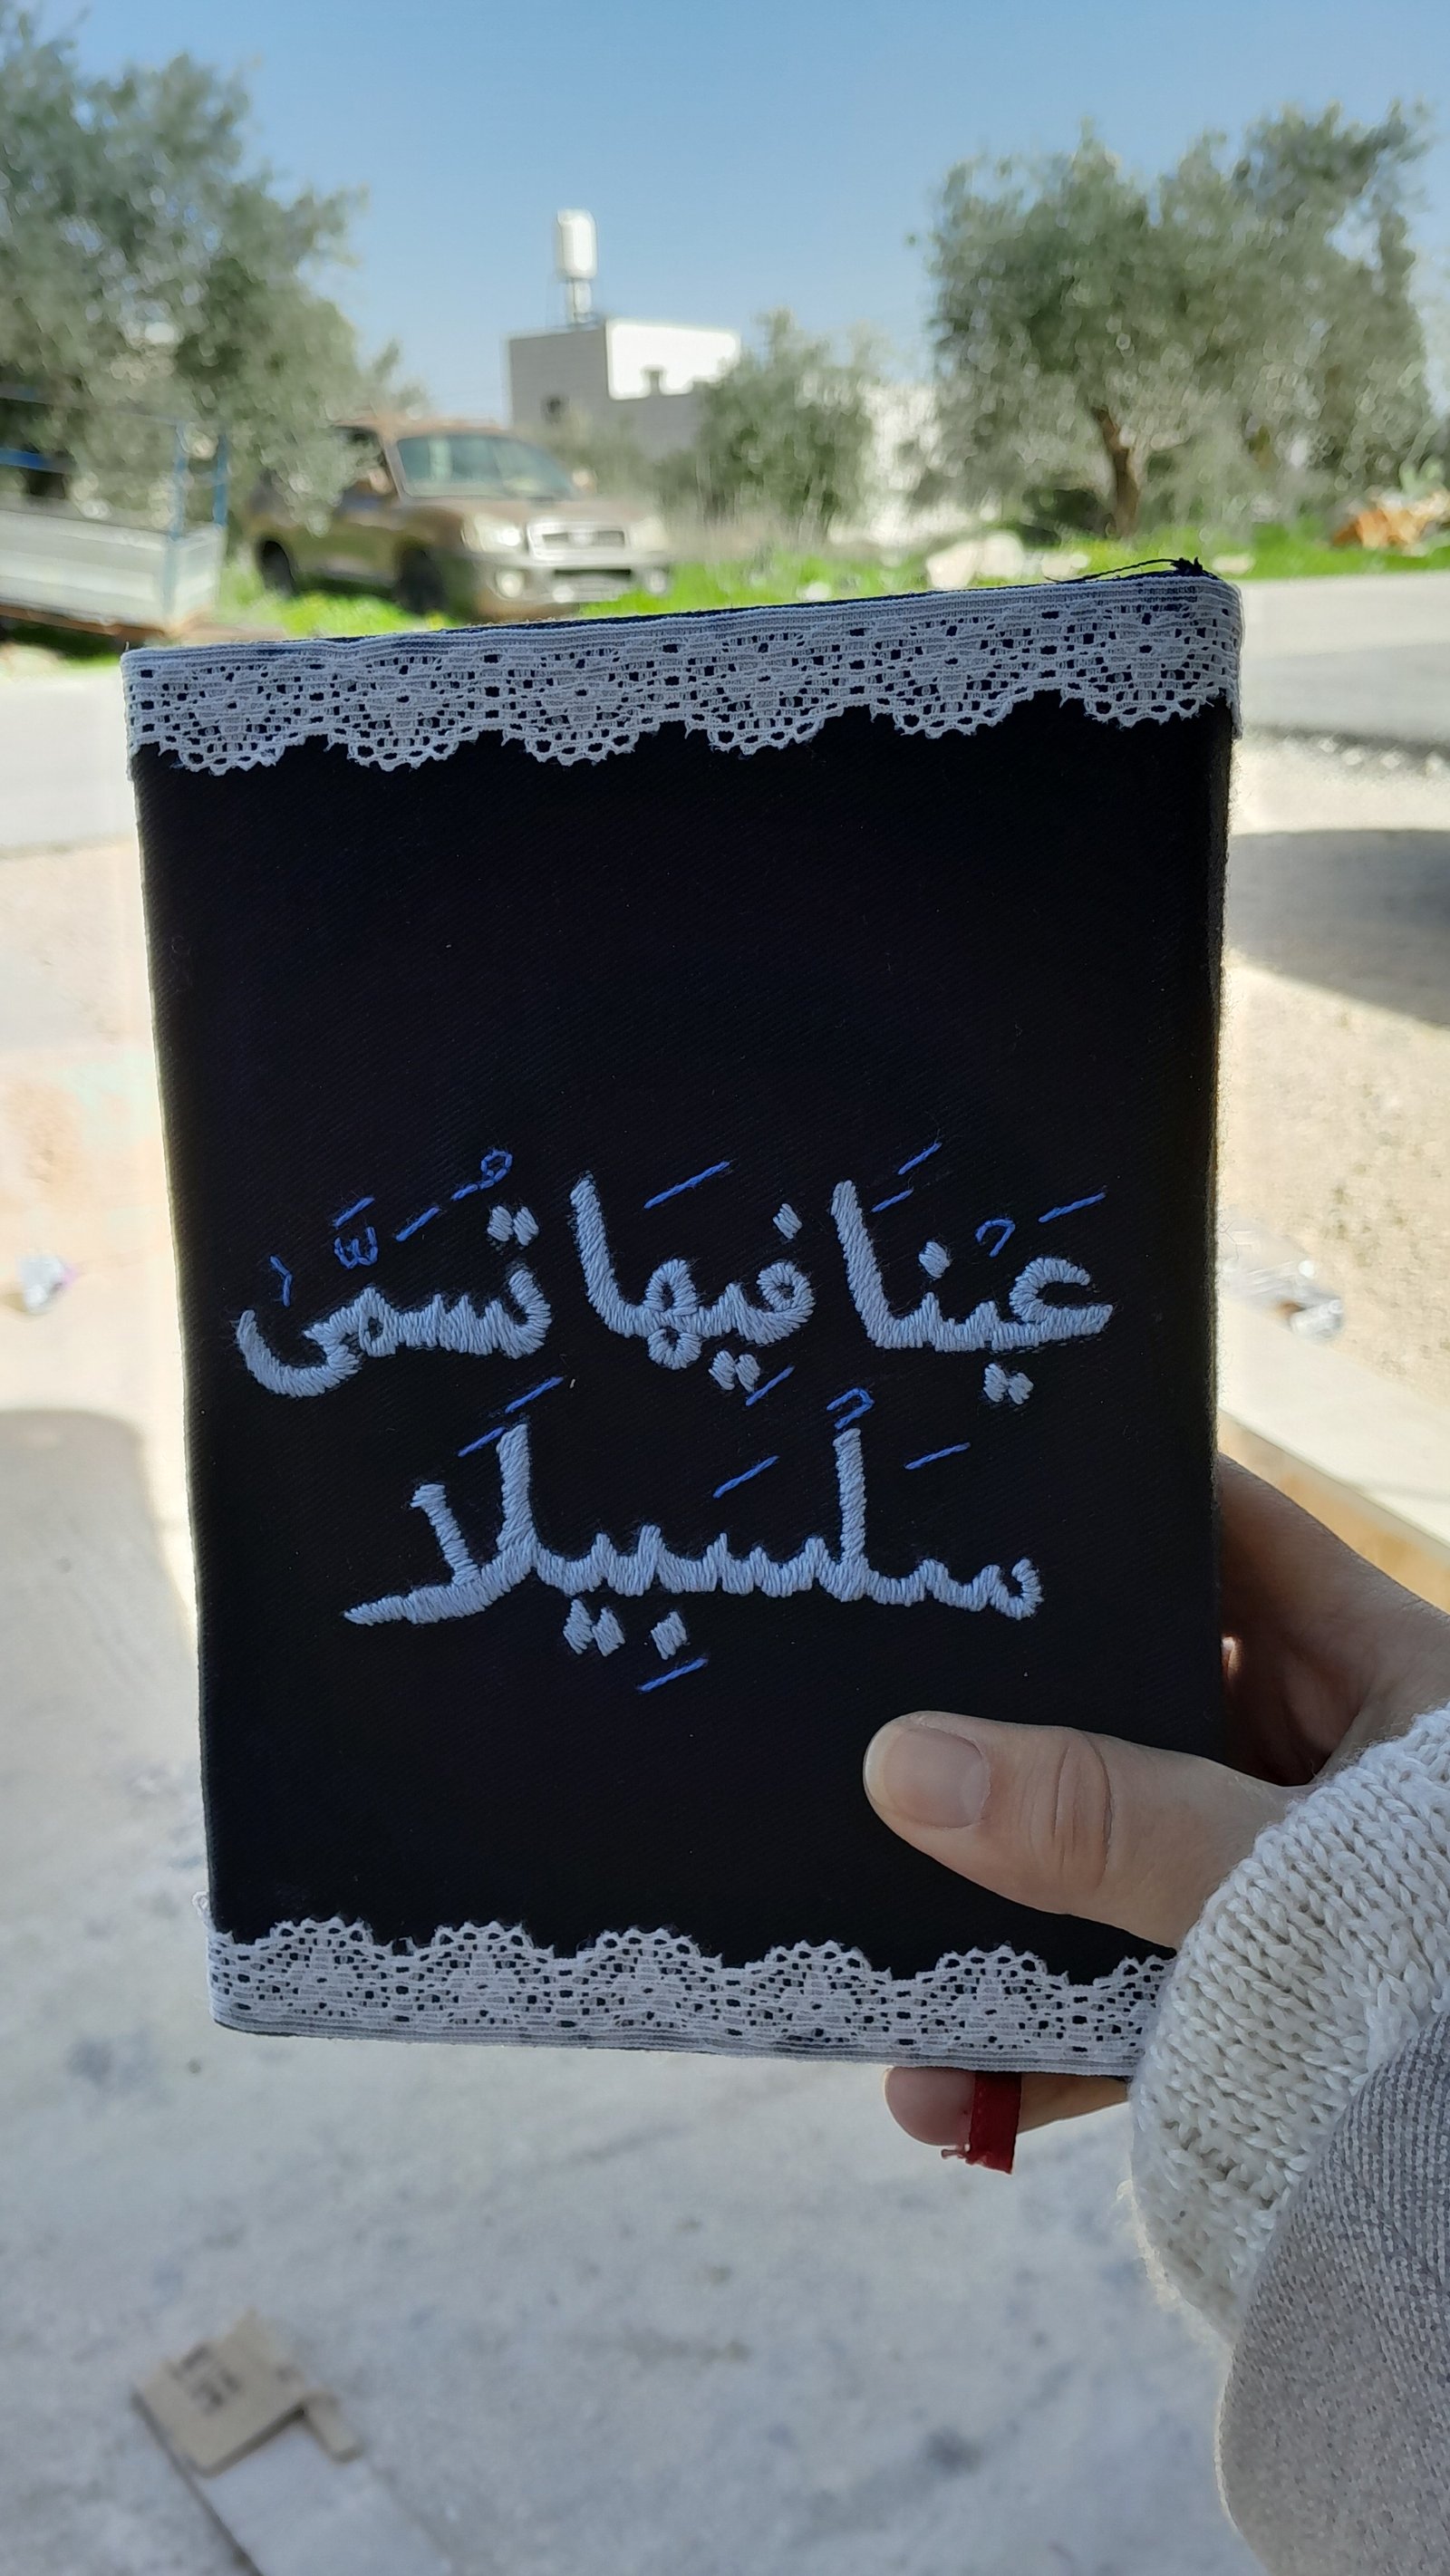 عَيْنًا فِيهَا تُسَمَّىٰ
سَلْسَبِيلًا